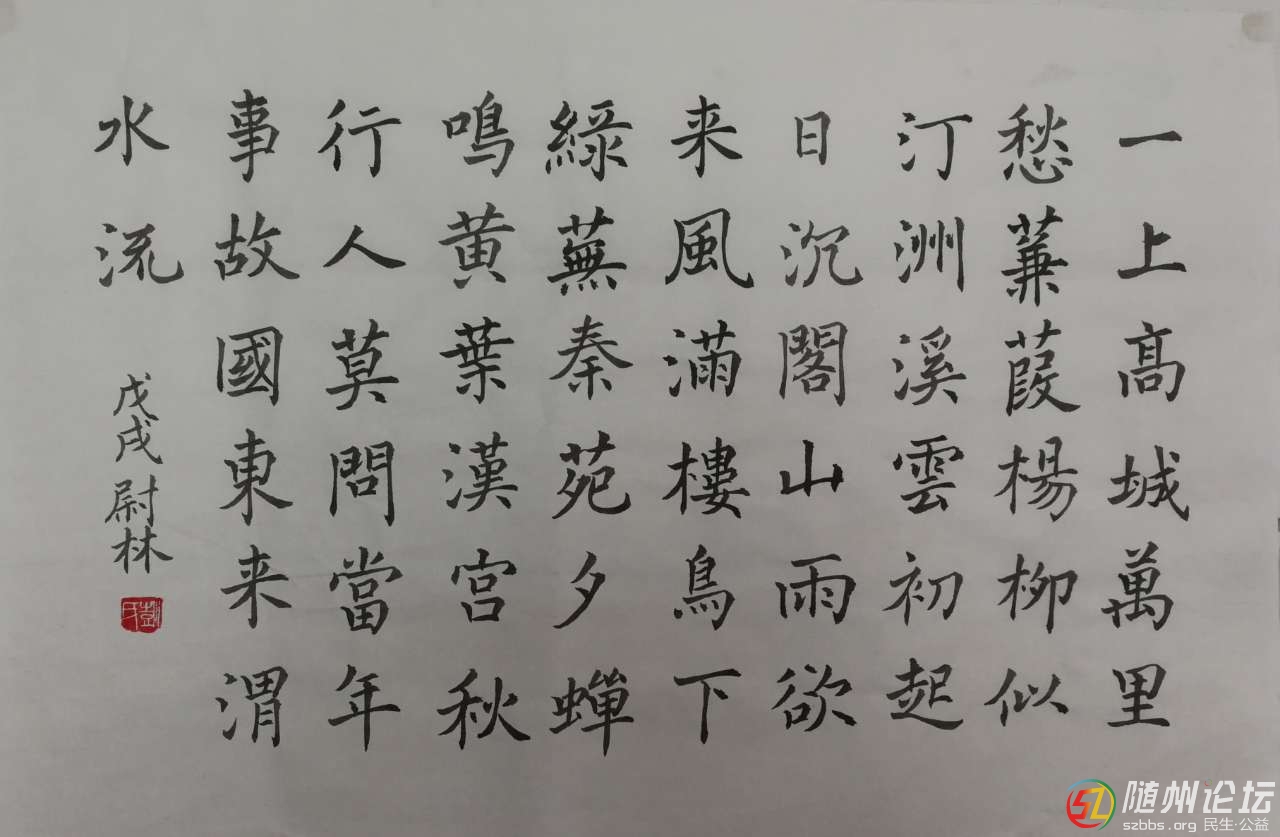 一上高城萬里
愁蒹葭楊柳似
汀洲溪雲初起
日沉閣山雨欲
来風滿樓鳥下
綠蕪秦苑夕蟬
鳴黄葉漢宫秋
行人莫問當年
事故國東来渭
水流
戊戌尉林
随州论坛
szbbs.org 民生·公益